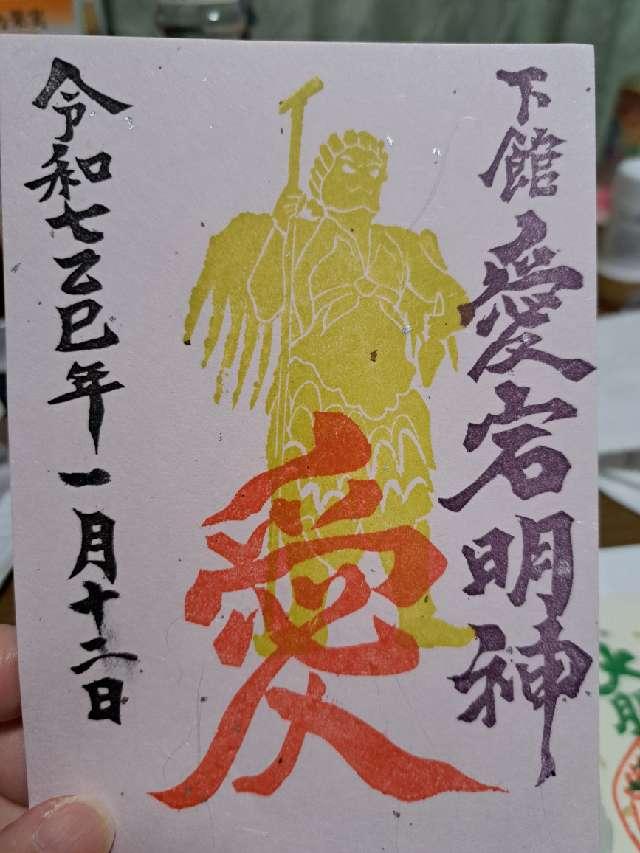 下館 愛宕明神
愛
令和七乙巳年一月十二日